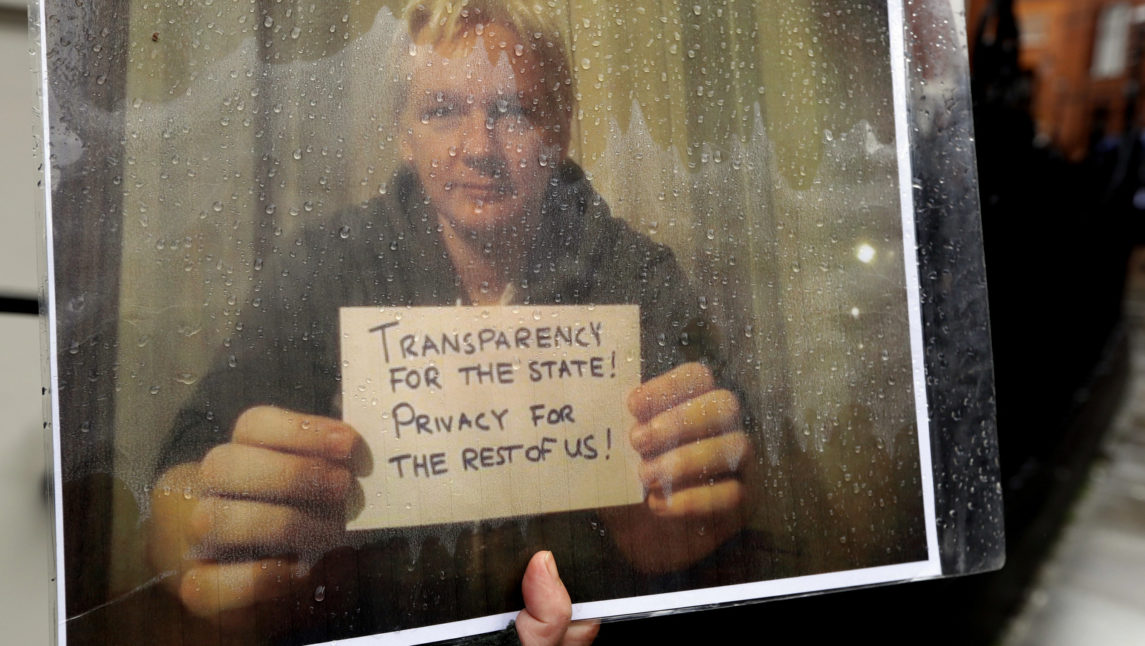 TRANSPARENCY
FOR THE STATE!
PRIVACY FOR
THE REST OF US!